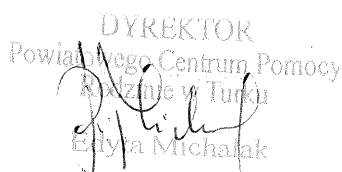 DYREKTOR
Powiatowego Centrum Pomocy
Rodzinie w Turku
Edyta Michalak